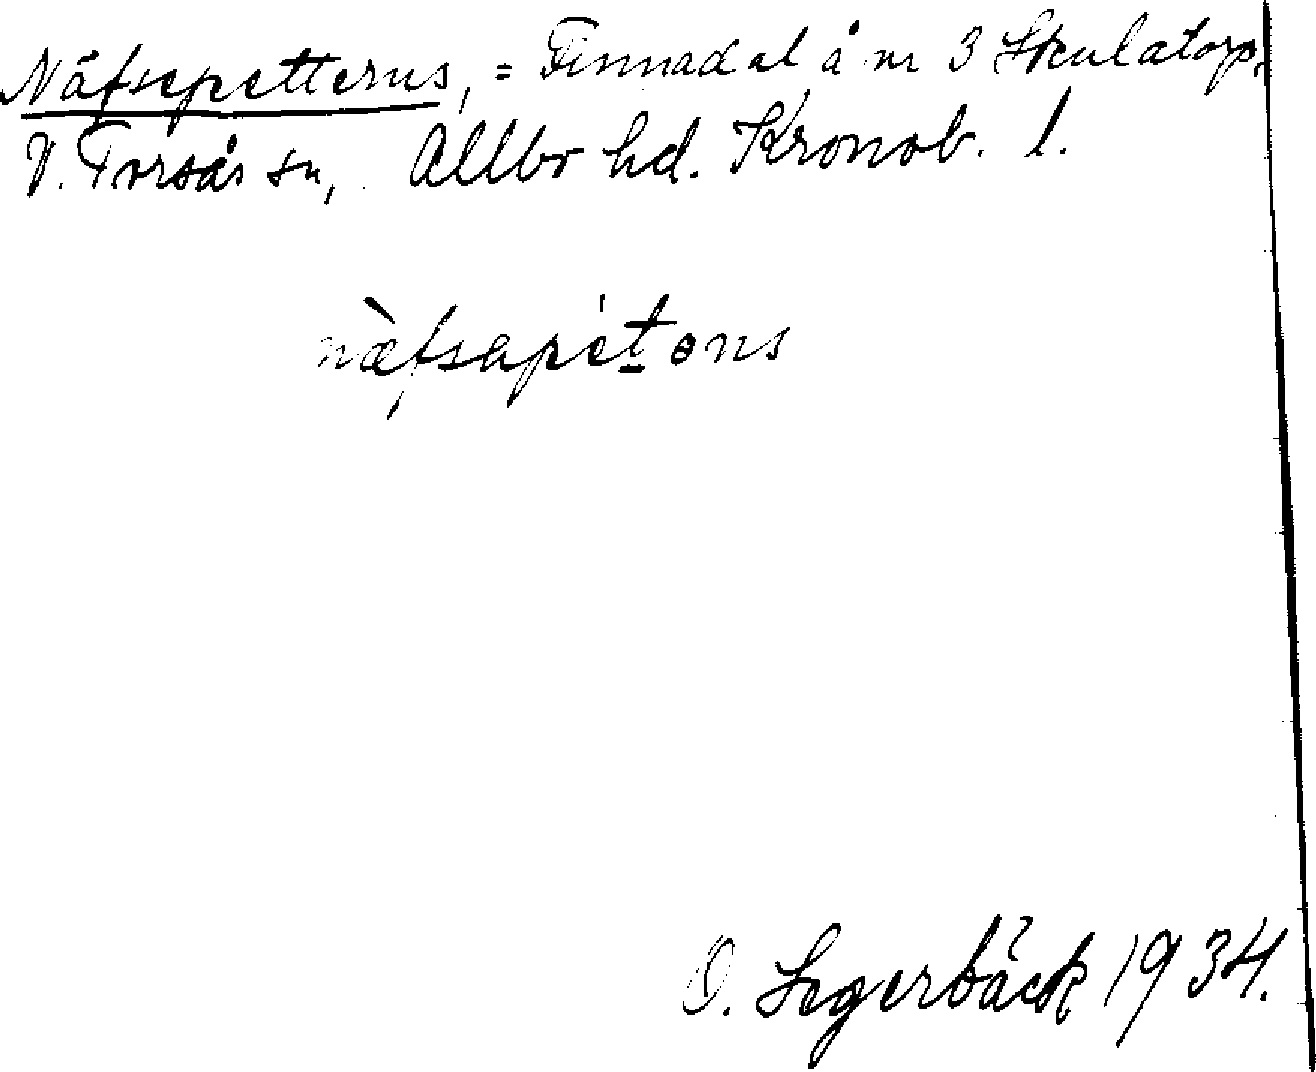 Näfsepetterns, = Finnadal å nr 3 Skulatorp,
V. Torsås sn, Allbo hd. Kronob. l.
næfsapetəns
O. Segerbäck 1934.